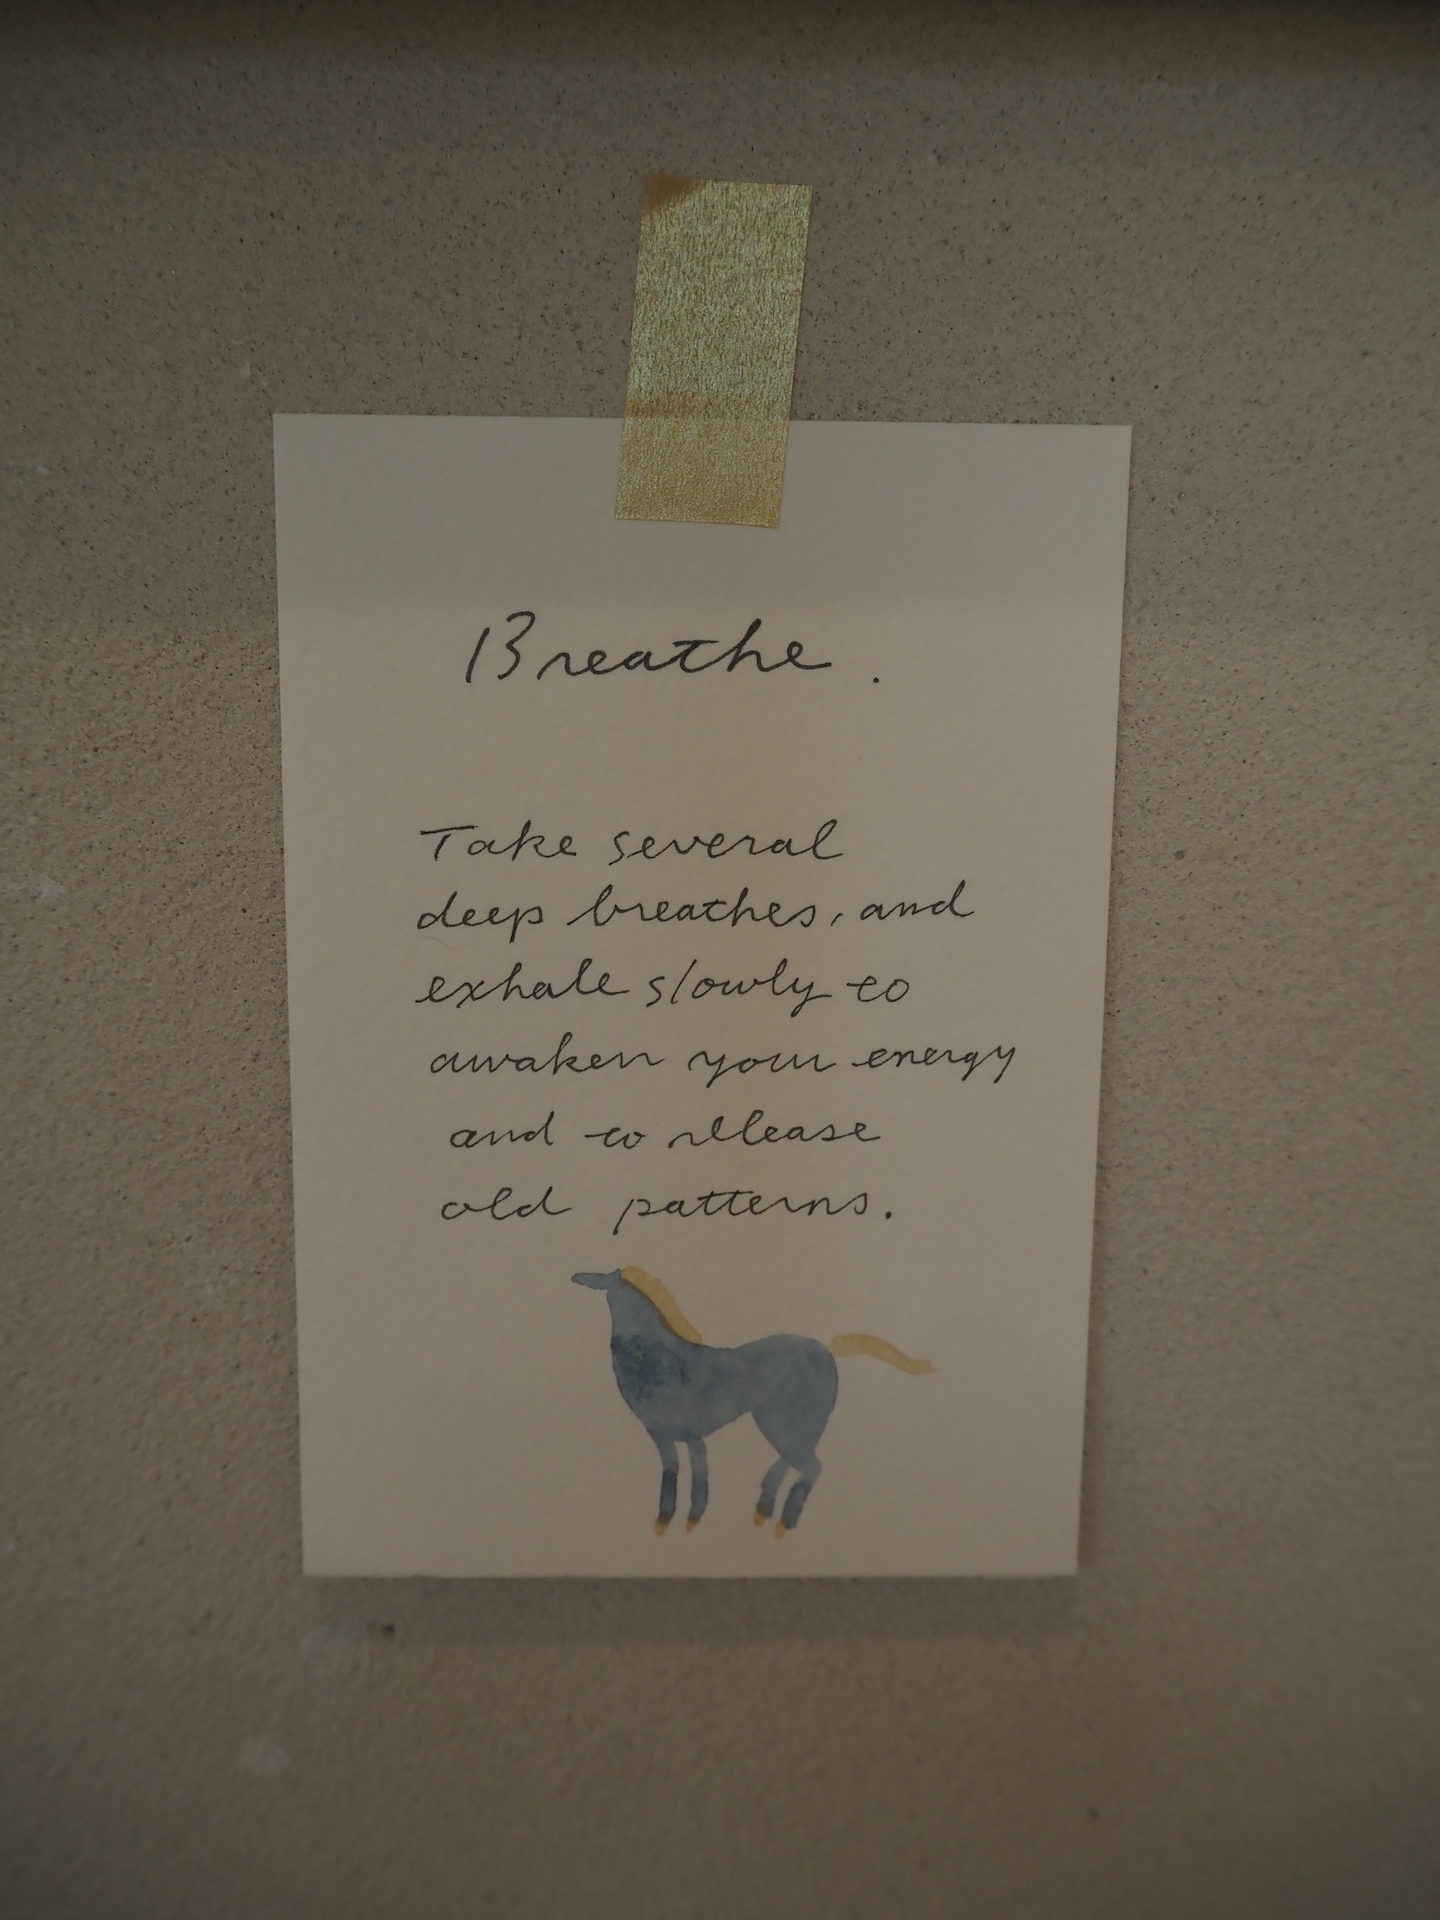 Breathe.
Take several
deep breathes, and
exhale slowly to
awaken your energy
and to release
old patterns.